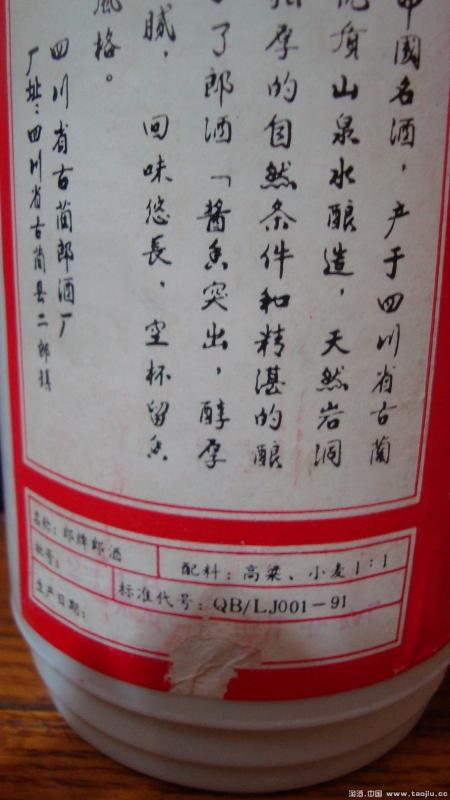 中國名酒，产于四川省古蔺
优质山泉水酿造，天然岩洞
的自然条件和精湛的酿
了郎酒「醬香突出，醇厚
腻，回味悠長，空杯留香
風格。
四川省古蔺郎酒厂
厂址：四川省古蔺县二郎镇
名称：郎牌郎酒
配料：高粱、小麦1:1
批号：
标准代号：QB/LJ001-91
生产日期：
淘酒.中国 www.taojiu.cc